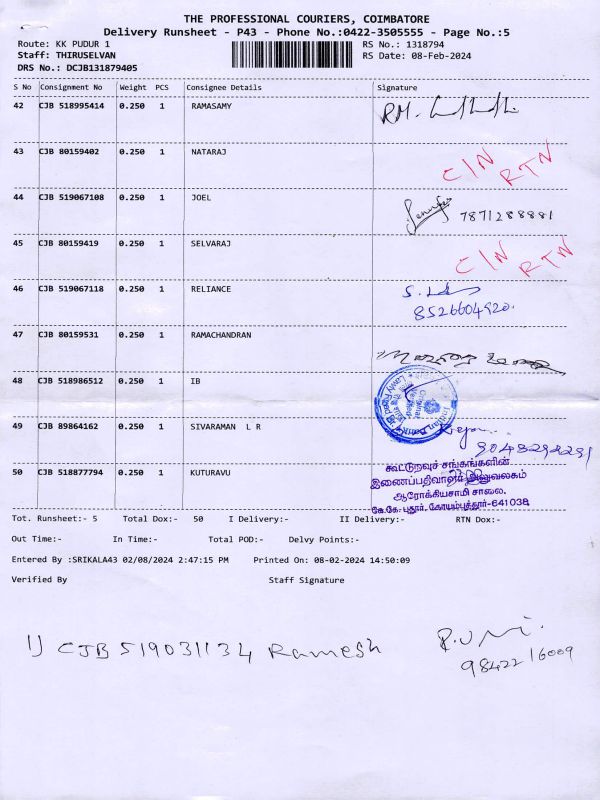 THE PROFESSIONAL COURIERS, COIMBATORE
Delivery Runsheet - P43 - Phone No.:0422-3505555 - Page No.:5
Route: KK PUDUR 1 RS No.: 1318794
Staff: THIRUSELVAN RS Date: 08-Feb-2024
DRS No.: DCJB131879405
S No Consignment No Weight PCS Consignee Details Signature
42 CJB 518995414 0.250 1 RAMASAMY RM.
43 CJB 80159402 0.250 1 NATARAJ C/N RTN
44 CJB 519067108 0.250 1 JOEL 7871288881
45 CJB 80159419 0.250 1 SELVARAJ C/N RTN
46 CJB 519067118 0.250 1 RELIANCE S.
8526604920.
47 CJB 80159531 0.250 1 RAMACHANDRAN
48 CJB 518986512 0.250 1 IB
49 CJB 89864162 0.250 1 SIVARAMAN L R
9048294291
50 CJB 518877794 0.250 1 KUTURAVU
கூட்டுறவுச் சங்கங்களின்
இணைப்பதிவாளர் அலுவலகம்
ஆரோக்கியசாமி சாலை,
கே.கே. புதூர், கோயம்புத்தூர்-641038
Tot. Runsheet:- 5 Total Dox:- 50 I Delivery:- II Delivery:- RTN Dox:-
Out Time:- In Time:- Total POD:- Delvy Points:-
Entered By :SRIKALA43 02/08/2024 2:47:15 PM Printed On: 08-02-2024 14:50:09
Verified By Staff Signature
1) CJB 519031134 Ramesh
98422 16009